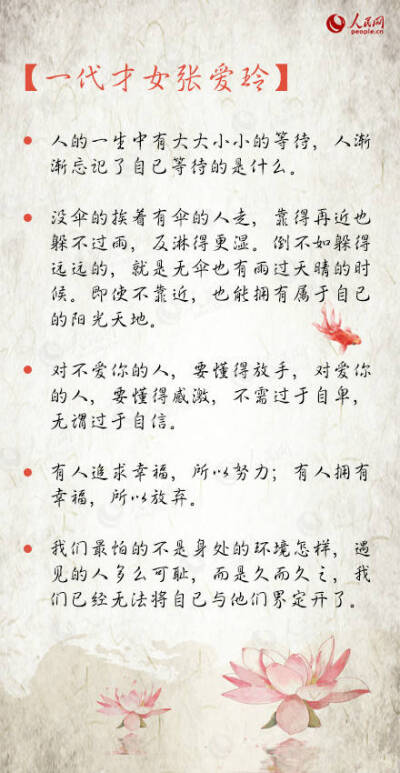 人民网
people.cn
【一代才女张爱玲】
• 人的一生中有大大小小的等待，人渐
渐忘记了自己等待的是什么。
• 没伞的挨着有伞的人走，靠得再近也
躲不过雨，反淋得更湿。倒不如躲得
远远的，就是无伞也有雨过天晴的时
候。即使不靠近，也能拥有属于自己
的阳光天地。
• 对不爱你的人，要懂得放手，对爱你
的人，要懂得感激，不需过于自卑，
无谓过于自信。
• 有人追求幸福，所以努力；有人拥有
幸福，所以放弃。
• 我们最怕的不是身处的环境怎样，遇
见的人多么可耻，而是久而久之，我
们已经无法将自己与他们界定开了。